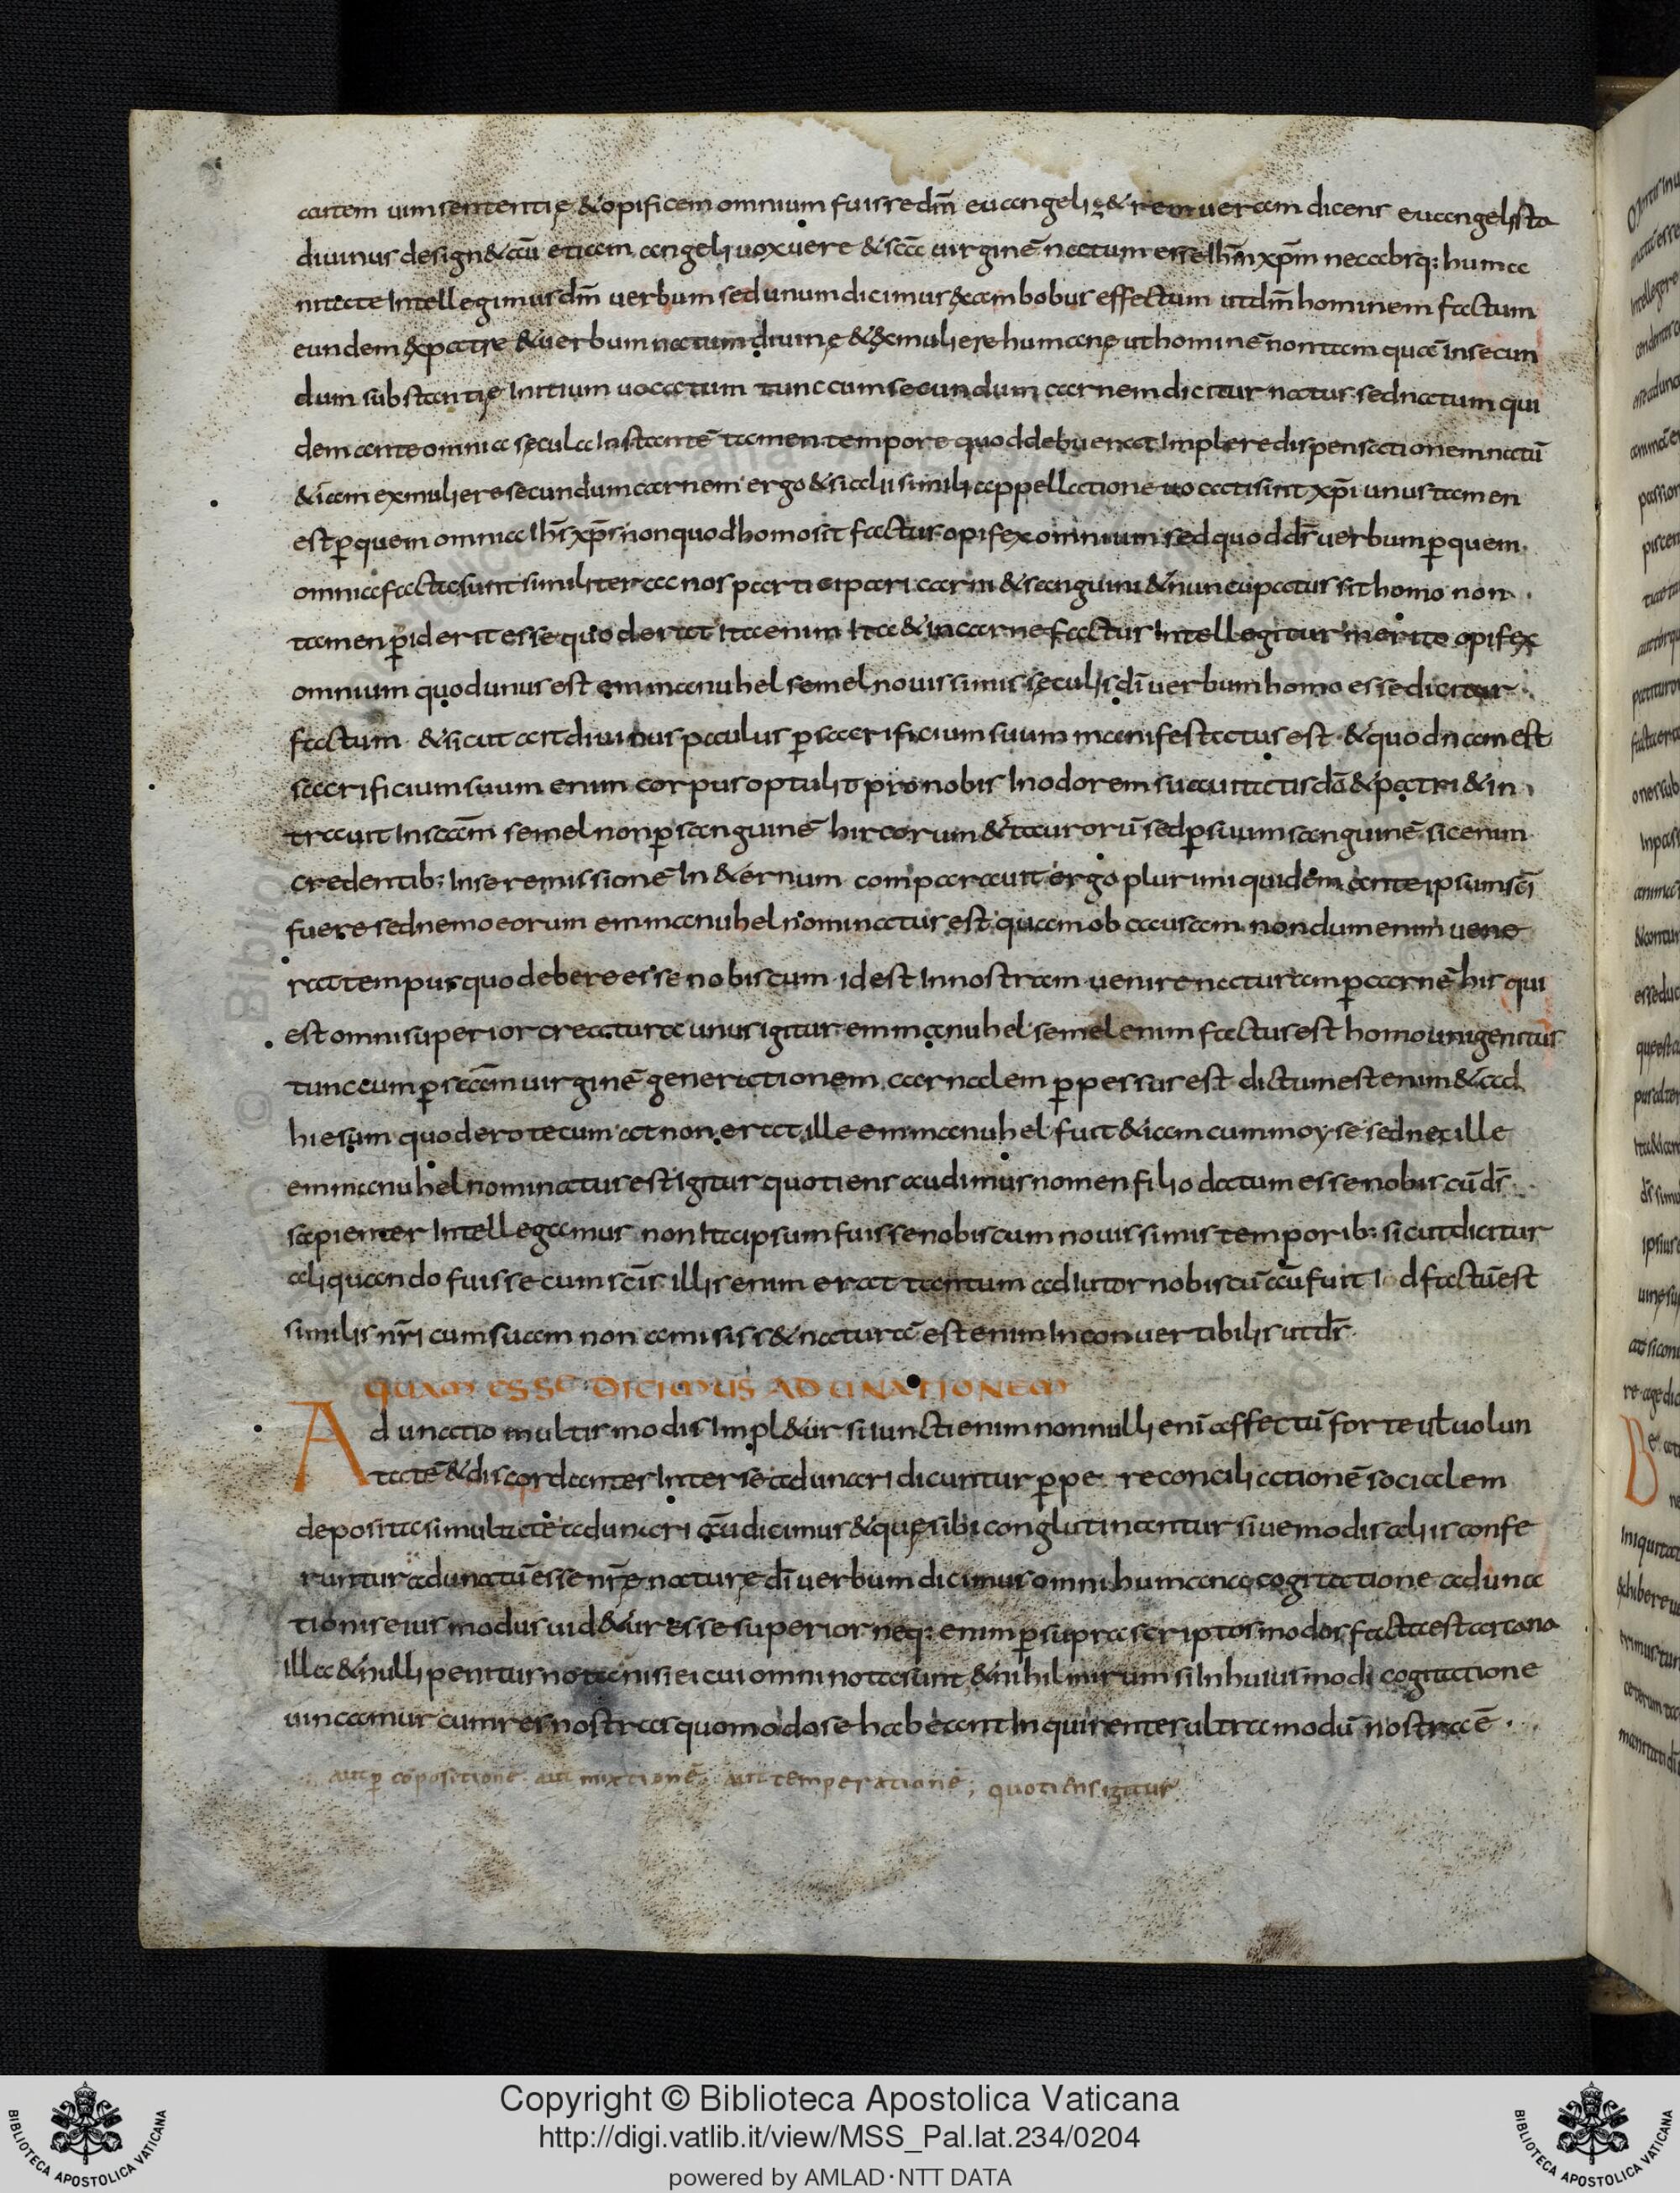 autem uim sententię & opificem omnium fuisse dm̄ euangelię & rem ueram dicens euangelista
diuinus design& cū etiam angeli uox uere & scā uirginē natum esse ihm̄ xpm̄ nec absq; huma
nitate intellegimus dm̄ uerbum sed unum dicimus ex ambobus effectum ut dm̄ hominem factum
eundem ex patre & uerbum natum diuinę & ex muliere humanę ut hominē non tamquā in secun
dum substantię initium uocatum tunc cum secundum carnem dicitur natus sed natum qui
dem ante omnia secula instantē tamen tempore quod debuerat implere dispensationem natū
& iam ex muliere secundum carnem ergo & si alii simili appellatione uocati sint xpi unus tamen
est ꝑ quem omnia ihs xps non quod homo sit factus opifex omnium sed quod ds̄ uerbum ꝑ quem
omnia facta sunt similiter ac nos participari carni & sanguini & nuncupatus sit homo non
tamen ꝑdiderit esse quod erat ita enim ita & in carne factus intellegitur merito opifex
omnium quod unus est emmanuhel semel nouissimis seculis dī uerbum homo esse dicitur
factum & sicut ait diuinus paulus ꝑ sacrificium suum manifestatus est & quod nam est
sacrificium suum enim corpus optulit pro nobis in odorem suauitatis dō & patri & in
trauit in scām semel non ꝑ sanguinē hircorum & taurorū sed ꝑ suum sanguinē sic enim
credentib; in se remissionē in &ernum comparauit ergo plurimi quidem ante ipsum scī
fuere sed nemo eorum emmanuhel nominatus est quam ob causam nondum enim uene
rat tempus quo debere esse nobiscum id est in nostram uenire naturam ꝑ carnē his qui
est omni superior creatura unus igitur emmanuhel semel enim factus est homo unigenitus
tunc cum ꝑ scām uirginē generationem carnalem ꝑpessus est dictum est enim & ad
hiesum quod ero tecum at non erat ille emmanuhel fuit & iam cum moyse sed nec ille
emmanuhel nominatus est igitur quotiens audimus nomen filio datum esse nobiscū ds̄
sapienter intellegamus non ita ipsum fuisse nobiscum nouissimis temporib; sicut dicitur
aliquando fuisse cum scīs illis enim erat tantum adiutor nobiscū aū fuit id factū est
similis nr̄i cum suam non amisiss& naturā est enim inconuertibilis ut ds̄
QUAM ESSE DICIMUS ADUNATIONEM
Adunatio multis modis impl&ur si iuncti enim nonnulli enī affectū forte ut uolun
tatē & discordanter inter se adunari dicuntur ꝑ pe reconciliationē socialem
deposita simultate adunari aū dicimus & que sibi conglutinantur siue modis aliis confe
runtur adunatū esse nr̄ę naturę dī uerbum dicimus omni humana cogitatione aduna
tionis eius modus uid&ur esse superior neq; enim ꝑ suprascriptos modos facta est arcana
illa & nulli penitus nota nisi ei cui omni nota sunt & nihil mirum si in huiusmodi cogitatione
uincamur cum res nostras quomodo se habeant inquirentes ultra modū nostra ē
aut ꝑ cōpositionē aut mixtionē aut temperationē; quotiens igitur
Copyright © Biblioteca Apostolica Vaticana
http://digi.vatlib.it/view/MSS_Pal.lat.234/0204
powered by AMLAD·NTT DATA
BIBLIOTECA APOSTOLICA VATICANA
BIBLIOTECA APOSTOLICA VATICANA